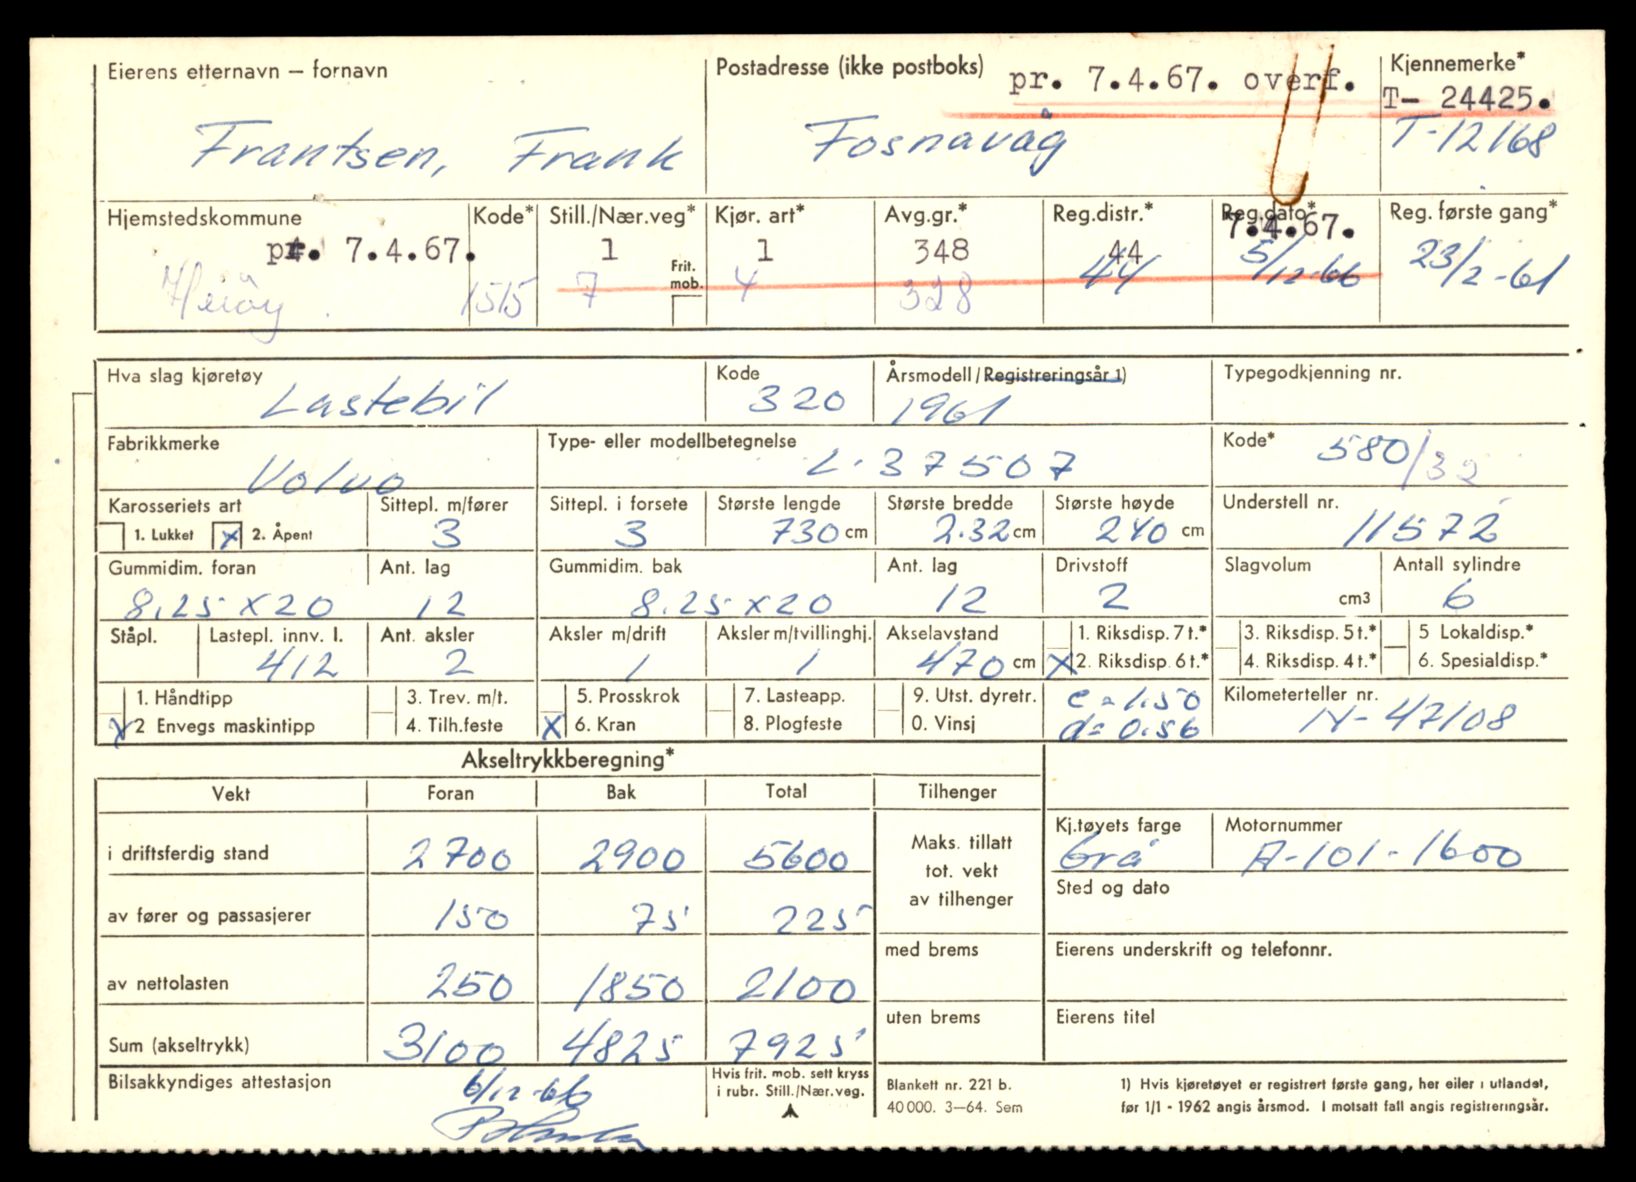 Eierens etternavn – fornavn
Frantsen, Frank
Postadresse (ikke postboks)
pr. 7.4.67. overf.
Fosnavåg
Kjennemerke*
T- 24425.
T-12168
Hjemstedskommune
pr. 7.4.67.
Herøy
Kode*
1515
Still./Nær.veg*
1
7
Frit. mob.
Kjør. art*
1
4
Avg.gr.*
348
328
Reg.distr.*
44
44
Reg.dato*
7.4.67.
5/12-66
Reg. første gang*
23/2-61
Hva slag kjøretøy
Lastebil
Kode
320
Årsmodell/Registreringsår 1)
1961
Typegodkjenning nr.
Fabrikkmerke
Volvo
Type- eller modellbetegnelse
L.37507
Kode*
580/32
Karosseriets art
1. Lukket x 2. Åpent
Sittepl. m/fører
3
Sittepl. i forsete
3
Største lengde
730 cm
Største bredde
2.32 cm
Største høyde
240 cm
Understell nr.
11572
Gummidim. foran
8.25 x 20
Ant. lag
12
Gummidim. bak
8.25 x 20
Ant. lag
12
Drivstoff
2
Slagvolum
cm3
Antall sylindre
6
Ståpl.
Lastepl. innv. l.
412
Ant. aksler
2
Aksler m/drift
1
Aksler m/tvillinghj.
1
Akselavstand
470 cm
1. Riksdisp. 7 t.*
x 2. Riksdisp. 6 t.*
3. Riksdisp. 5 t.*
4. Riksdisp. 4 t.*
5 Lokaldisp.*
6. Spesialdisp.*
1. Håndtipp
x 2 Envegs maskintipp
3. Trev. m/t.
4. Tilh.feste
5. Prosskrok
x 6. Kran
7. Lasteapp.
8. Plogfeste
9. Utst. dyretr.
0. Vinsj
c = 1.50
d = 0.56
Kilometerteller nr.
N-47108
Akseltrykkberegning*
Vekt Foran Bak Total Tilhenger
i driftsferdig stand 2700 2900 5600
av fører og passasjerer 150 75 225
av nettolasten 250 1850 2100
Sum (akseltrykk) 3100 4825 7925
Maks. tillatt
tot. vekt
av tilhenger
med brems
uten brems
Kj.tøyets farge
Grå
Motornummer
A-101-1600
Sted og dato
Eierens underskrift og telefonnr.
Eierens titel
Bilsakkyndiges attestasjon
6/12-66
Hvis frit. mob. sett kryss
i rubr. Still./Nær.veg.
Blankett nr. 221 b.
40 000. 3–64. Sem
1) Hvis kjøretøyet er registrert første gang, her eller i utlandet,
før 1/1 - 1962 angis årsmod. I motsatt fall angis registreringsår.